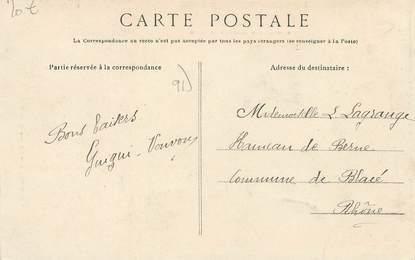 20 €
CARTE POSTALE
La Correspondance au recto n'est pas acceptée par tous les pays étrangers (se renseigner à la Poste)
Partie réservée à la correspondance
Adresse du destinataire :
91
Bons baisers
Guigui-
Mademoiselle L Lagrange
Hameau de Berne
Commune de Blacé
Rhône